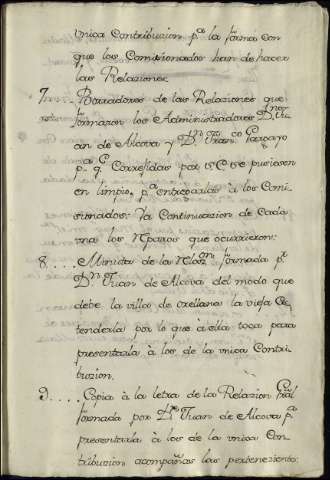 vnica Contribuzion pª. la forma con
que los Comisionados han de hacer
las Relaziones
7. Borradores de las Relaziones que
formaron los Administradores Dn. Ju
an de Alcova y Dn. Franco.
pª. q. Correjidas por se pusiesen
en limpio, pª. entregarlas a los Comi
sionados: Ya Continuazion de Cada
vna los Rparos que ocurrieron:
8.... Minuta de la Rlazon. formada pr.
Dn. Juan de Alcova del modo que
debe la villa de orellana la vieja es
tenderla por lo que à ella toca para
presentarla à los de la vnica Contri
buzion.
9.... Copia à la letra de la Relazion Gral
formada por Dn. Juan de Alcova pª.
presentarla à los de la vnica Con
tribuzion acompañas. las pertenecientes